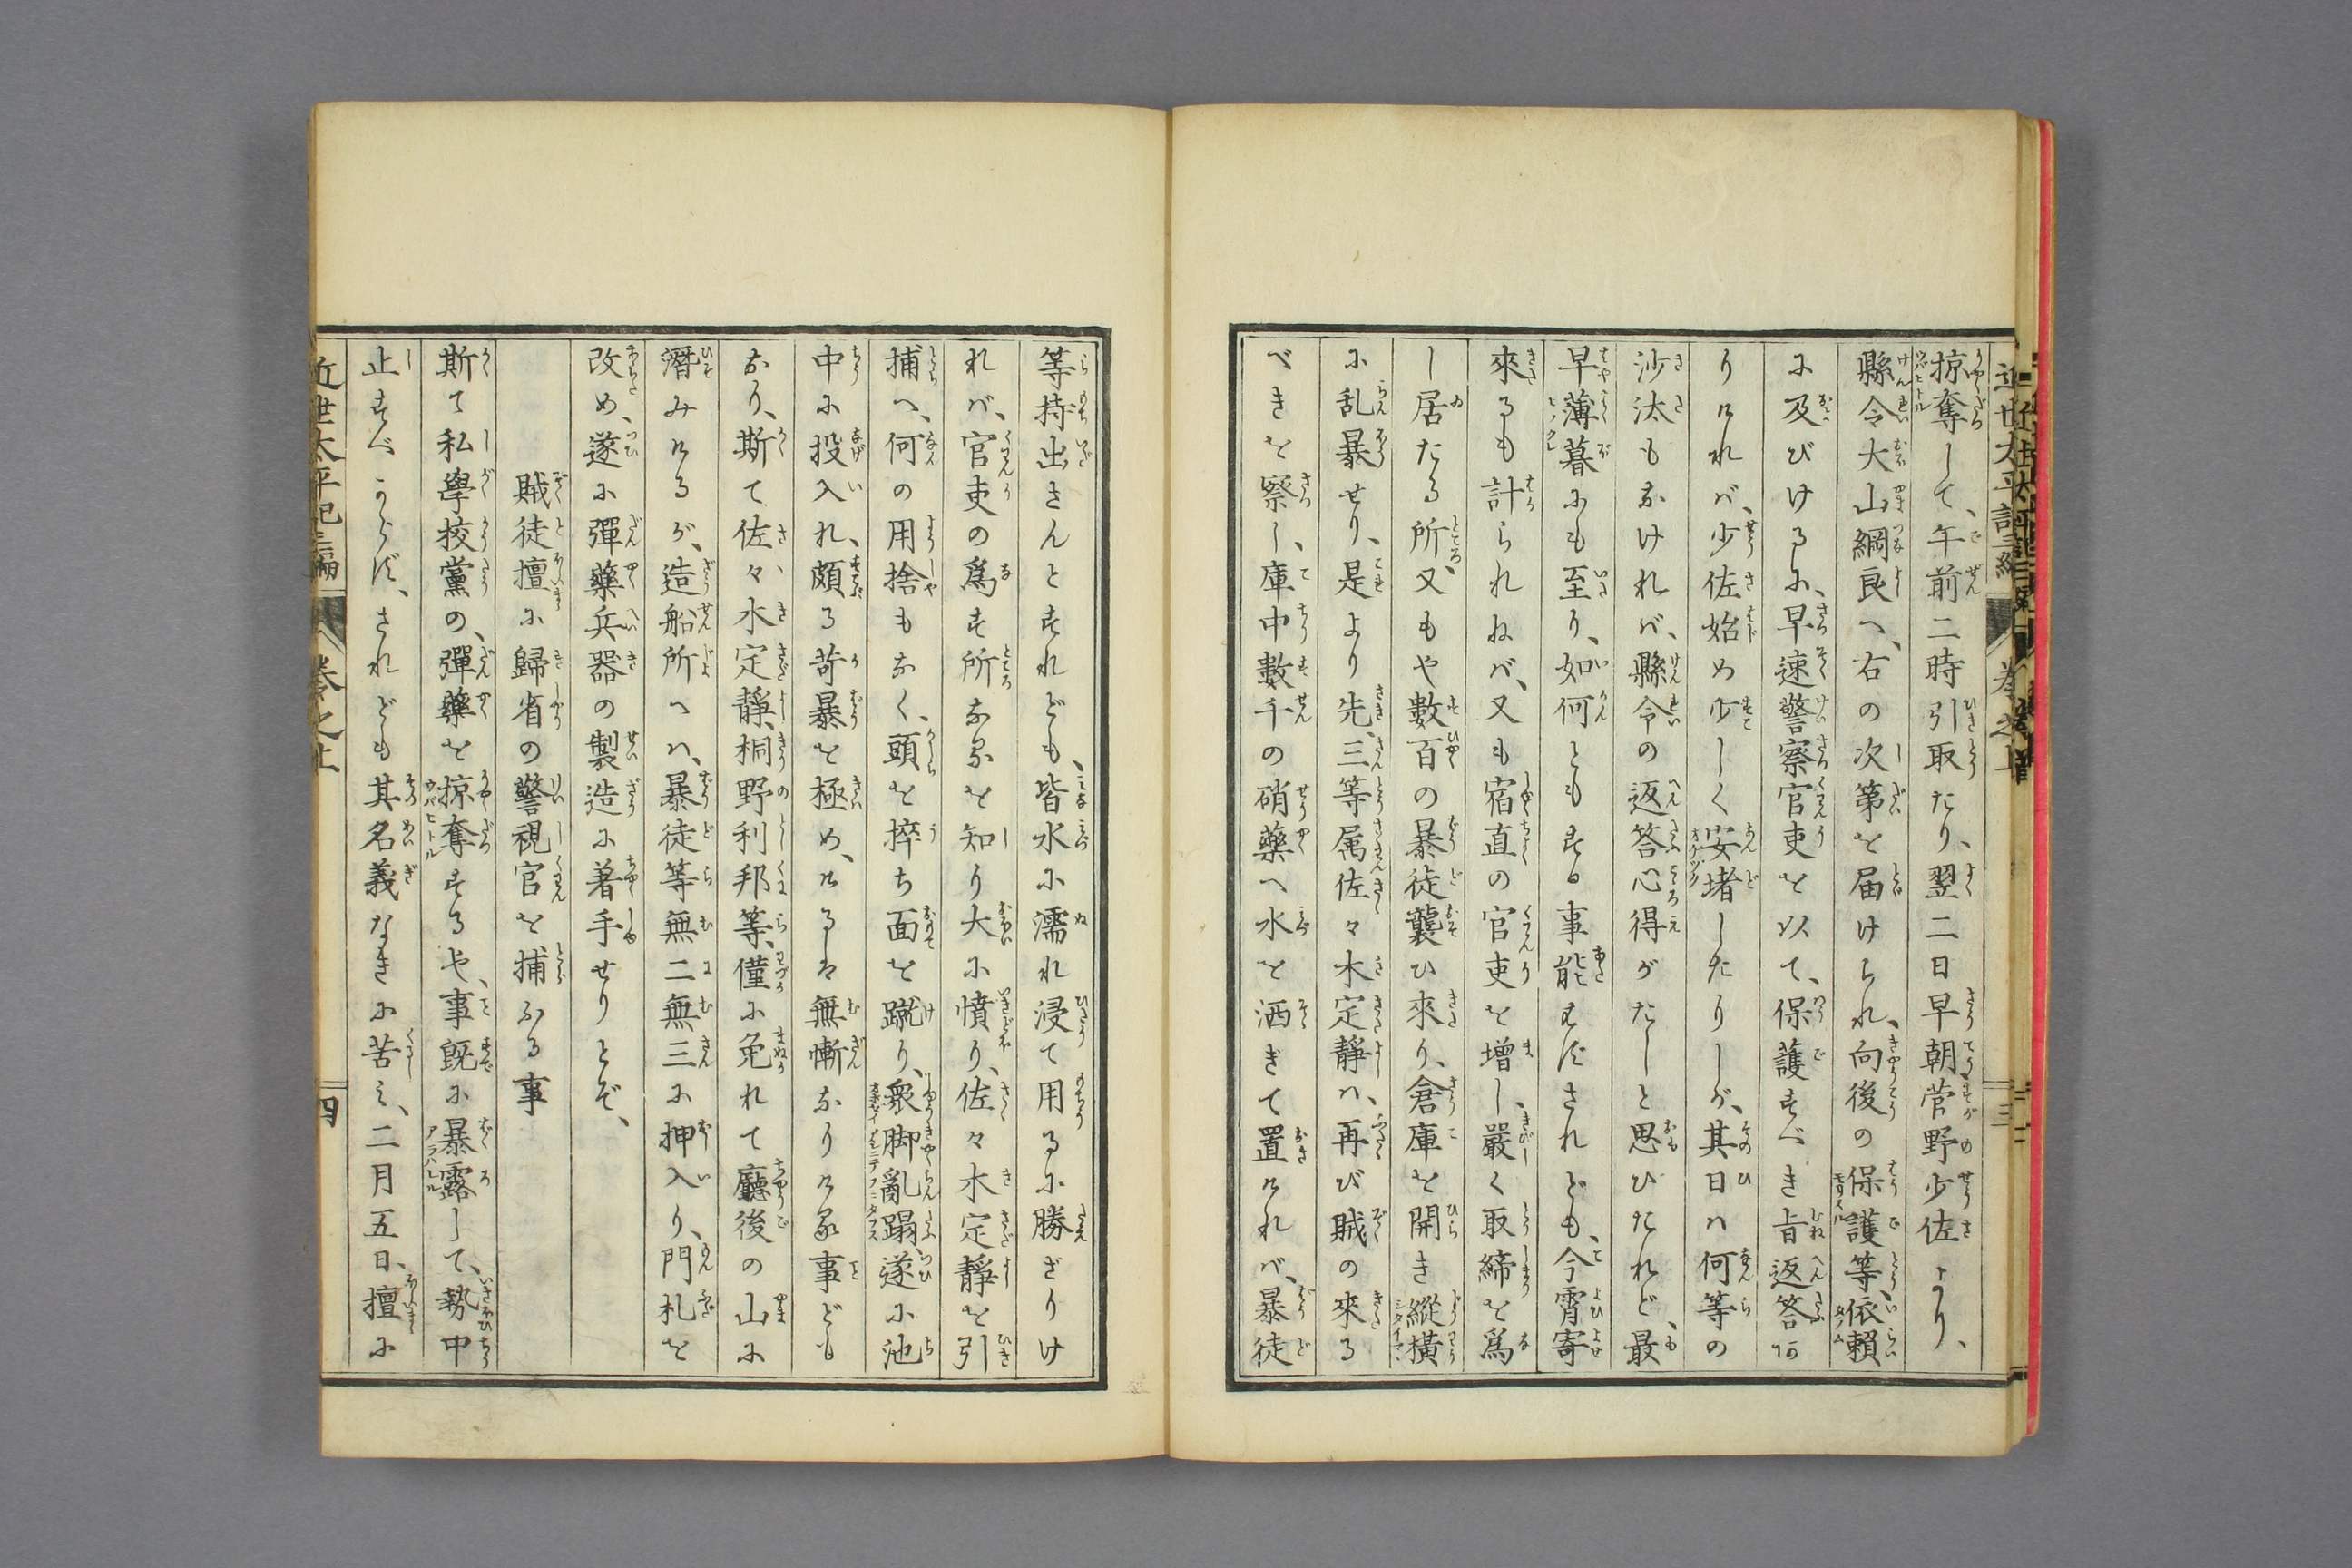 掠奪して、午前二時引取たり、翌二日早朝菅野少佐より、
縣令大山綱良へ、右の次第を届けられ、向後の保護等、依頼
に及びけるに、早速警察官吏を以て、保護すべき旨返答あ
りければ、少佐始め少しく安堵したりしが、其日は何等の
沙汰もなければ、縣令の返答心得がたしと思ひたれど、最
早薄暮にも至り、如何ともする事能はずされども、今霄寄
來るも計られねば、又も宿直の官吏を增し、嚴く取締を爲
し居たる所、又もや數百の暴徒襲ひ來り、倉庫を開き縱橫
に乱暴せり、是より先、三等属佐々木定靜は、再び賊の來る
べきを察し、庫中數千の硝藥へ水を洒ぎて置ければ、暴徒
等持出さんとすれども、皆水に濡れ浸て用るに勝ざりけ
れば、官吏の爲す所なるを知り大に憤り、佐々木定靜を引
捕へ、何の用捨もなく、頭を捽ち面を蹴り、衆脚亂蹋、遂に池
中に投入れ、頗る苛暴を極め、けるは無慚なりける事ども
なり、斯て佐々木定靜、桐野利邦等、僅に免れて廳後の山に
潛みけるが、造船所へは、暴徒等無二無三に押入り、門札を
改め、遂に彈藥兵器の製造に着手せりとぞ、
賊徒擅に歸省の警視官を捕ふる事
斯て私學校黨の、彈藥を掠奪するや、事既に暴露して、勢中
止すべからず、されども其名義なきに苦み、二月五日、擅に
近世太平記三編　卷之上　四